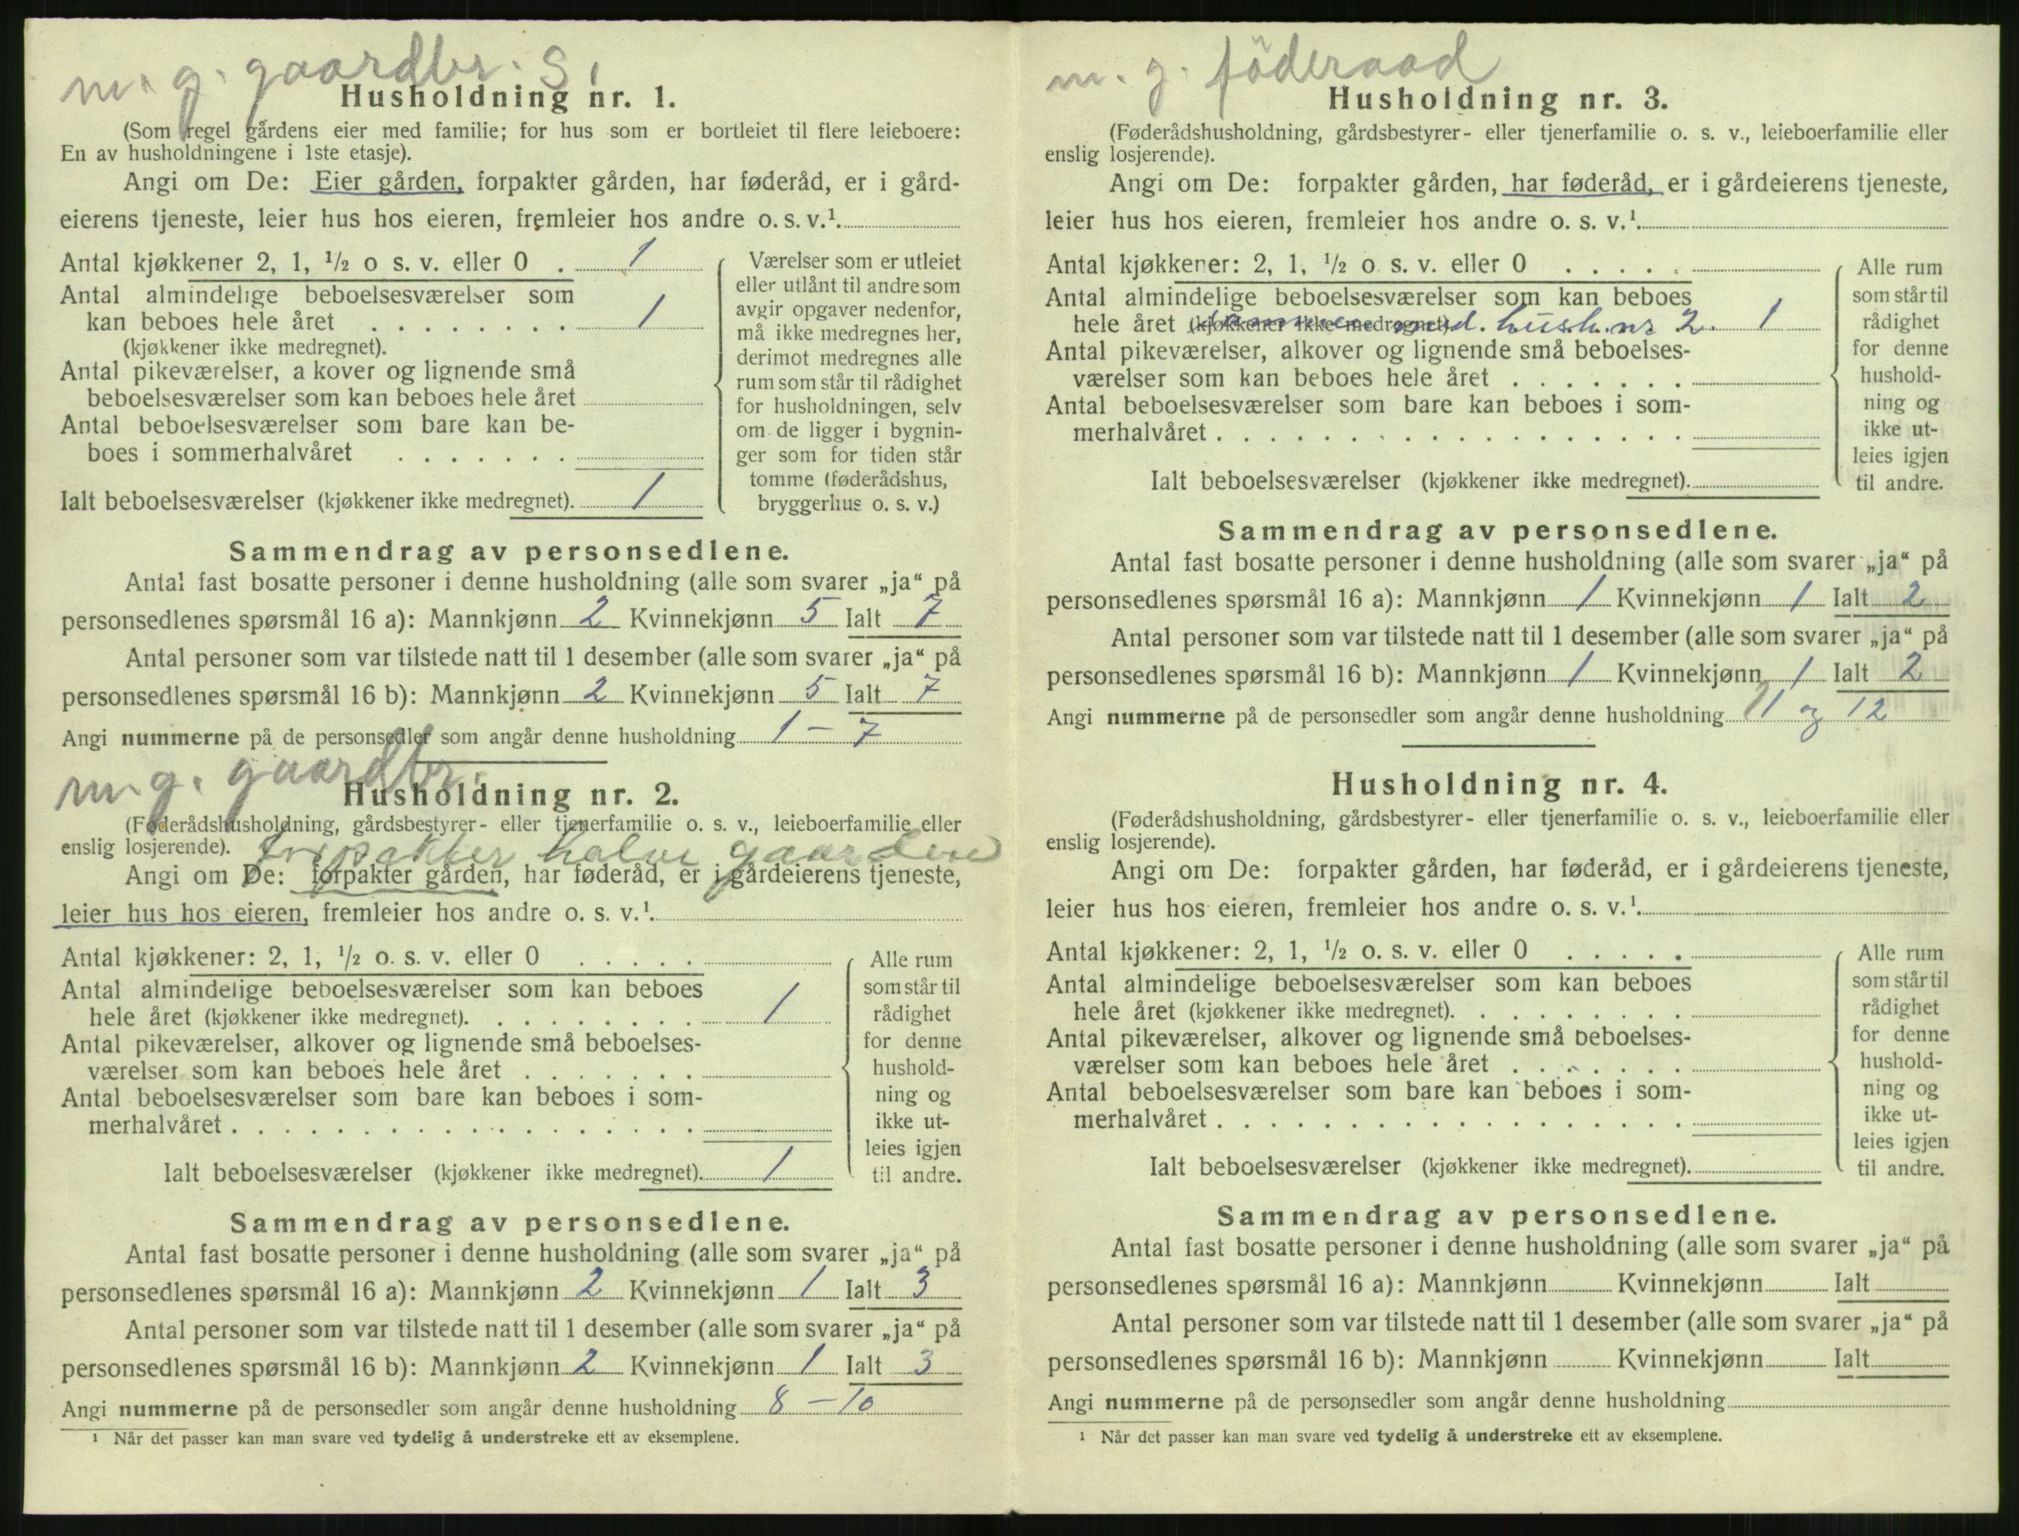 m. g. gaardbr. S.
Husholdning nr. 1.
(Som regel gårdens eier med familie; for hus som er bortleiet til flere leieboere:
En av husholdningene i 1ste etasje).
Angi om De: Eier gården, forpakter gården, har føderåd, er i gård-
eierens tjeneste, leier hus hos eieren, fremleier hos andre o. s. v.¹
Antal kjøkkener 2, 1, ½ o s. v. eller 0 . 1
Antal almindelige beboelsesværelser som
kan beboes hele året . . . . . . . . 1
(kjøkkener ikke medregnet).
Antal pikeværelser, a kover og lignende små
beboelsesværelser som kan beboes hele året
Antal beboelsesværelser som bare kan be-
boes i sommerhalvåret . . . . . . .
Ialt beboelsesværelser (kjøkkener ikke medregnet). 1
Værelser som er utleiet
eller utlånt til andre som
avgir opgaver nedenfor,
må ikke medregnes her,
derimot medregnes alle
rum som står til rådighet
for husholdningen, selv
om de ligger i bygnin-
ger som for tiden står
tomme (føderådshus,
bryggerhus o. s. v.)
Sammendrag av personsedlene.
Antal fast bosatte personer i denne husholdning (alle som svarer „ja“ på
personsedlenes spørsmål 16 a): Mannkjønn 2 Kvinnekjønn 5 Ialt 7
Antal personer som var tilstede natt til 1 desember (alle som svarer „ja“ på
personsedlenes spørsmål 16 b): Mannkjønn 2 Kvinnekjønn 5 Ialt 7
Angi nummerne på de personsedler som angår denne husholdning 1 – 7
m. g. gaardbr.
Husholdning nr. 2.
(Føderådshusholdning, gårdsbestyrer- eller tjenerfamilie o. s. v., leieboerfamilie eller
enslig losjerende). forpakter halve gaarden
Angi om De: forpakter gården, har føderåd, er i gårdeierens tjeneste,
leier hus hos eieren, fremleier hos andre o. s. v.¹
Antal kjøkkener: 2, 1, ½ o. s. v. eller 0 . . . . .
Antal almindelige beboelsesværelser som kan beboes
hele året (kjøkkener ikke medregnet). . . . . . . . . 1
Antal pikeværelser, alkover og lignende små beboelses-
værelser som kan beboes hele året . . . . . . .
Antal beboelsesværelser som bare kan beboes i som-
merhalvåret . . . . . . . . . . . . . . . . . .
Ialt beboelsesværelser (kjøkkener ikke medregnet). 1
Alle rum
som står til
rådighet
for denne
hushold-
ning og
ikke ut-
leies igjen
til andre.
Sammendrag av personsedlene.
Antal fast bosatte personer i denne husholdning (alle som svarer „ja“ på
personsedlenes spørsmål 16 a): Mannkjønn 2 Kvinnekjønn 1 Ialt 3
Antal personer som var tilstede natt til 1 desember (alle som svarer „ja“ på
personsedlenes spørsmål 16 b): Mannkjønn 2 Kvinnekjønn 1 Ialt 3
Angi nummerne på de personsedler som angår denne husholdning 8 – 10
¹ Når det passer kan man svare ved tydelig å understreke ett av eksemplene.
m. g. föderaad
Husholdning nr. 3.
(Føderådshusholdning, gårdsbestyrer- eller tjenerfamilie o. s. v., leieboerfamilie eller
enslig losjerende).
Angi om De: forpakter gården, har føderåd, er i gårdeierens tjeneste,
leier hus hos eieren, fremleier hos andre o. s. v.¹
Antal kjøkkener: 2, 1, ½ o. s. v. eller 0 . . . . .
Antal almindelige beboelsesværelser som kan beboes
hele året (kjøkkener ikke medregnet). sammen med hush. nr 2. 1
Antal pikeværelser, alkover og lignende små beboelses-
værelser som kan beboes hele året . . . . . . .
Antal beboelsesværelser som bare kan beboes i som-
merhalvåret . . . . . . . . . . . . . . . . . .
Ialt beboelsesværelser (kjøkkener ikke medregnet).
Alle rum
som står til
rådighet
for denne
hushold-
ning og
ikke ut-
leies igjen
til andre.
Sammendrag av personsedlene.
Antal fast bosatte personer i denne husholdning (alle som svarer „ja“ på
personsedlenes spørsmål 16 a): Mannkjønn 1 Kvinnekjønn 1 Ialt 2
Antal personer som var tilstede natt til 1 desember (alle som svarer „ja“ på
personsedlenes spørsmål 16 b): Mannkjønn 1 Kvinnekjønn 1 Ialt 2
Angi nummerne på de personsedler som angår denne husholdning 11 og 12
Husholdning nr. 4.
(Føderådshusholdning, gårdsbestyrer- eller tjenerfamilie o. s. v., leieboerfamilie eller
enslig losjerende).
Angi om De: forpakter gården, har føderåd, er i gårdeierens tjeneste,
leier hus hos eieren, fremleier hos andre o. s. v.¹
Antal kjøkkener: 2, 1, ½ o. s. v. eller 0 . . . . .
Antal almindelige beboelsesværelser som kan beboes
hele året (kjøkkener ikke medregnet). . . . . . . . .
Antal pikeværelser, alkover og lignende små beboelses-
værelser som kan beboes hele året . . . . . . .
Antal beboelsesværelser som bare kan beboes i som-
merhalvåret . . . . . . . . . . . . . . . . . .
Ialt beboelsesværelser (kjøkkener ikke medregnet).
Alle rum
som står til
rådighet
for denne
hushold-
ning og
ikke ut-
leies igjen
til andre.
Sammendrag av personsedlene.
Antal fast bosatte personer i denne husholdning (alle som svarer „ja“ på
personsedlenes spørsmål 16 a): Mannkjønn Kvinnekjønn Ialt
Antal personer som var tilstede natt til 1 desember (alle som svarer „ja“ på
personsedlenes spørsmål 16 b): Mannkjønn Kvinnekjønn Ialt
Angi nummerne på de personsedler som angår denne husholdning
¹ Når det passer kan man svare ved tydelig å understreke ett av eksemplene.